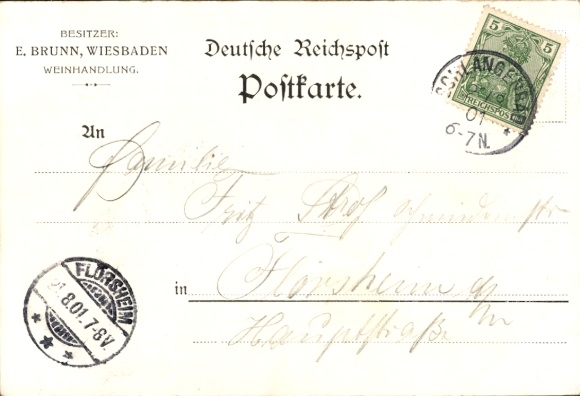 BESITZER:
E. BRUNN, WIESBADEN
WEINHANDLUNG.
Deutsche Reichspost
Postkarte.
5 5
REICHSPOST
SCHLANGENBAD
01
6-7N.
An
Familie
Fritz
in Flörsheim a/M
Hauptstraße
FLÖRSHEIM
8.01.7-8V.